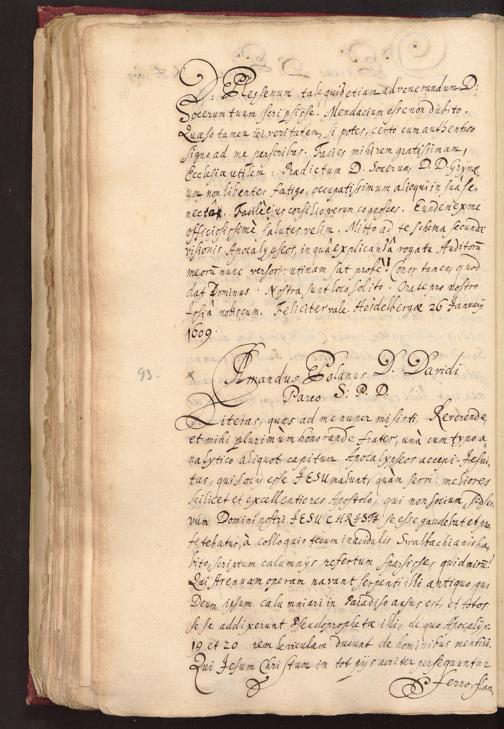 D. Plessenum tale quid etiam ad venerandum D:
Socerum tuum scripsisse! Mendacium esse non dubito.
Quaeso tamen rei veritatem, si potes, certo cum authentico
signo ad me perscribas. Facies mihi rem gratissimam,
Ecclesiae utilem: Praedictum D. Socerum, D. D. Grynae
um non libenter fatigo, occupatissimum alioqui in sua se
necta. Facile ejus consilio verum cognosces. Eundem ex me
officiosissime salutes velim. Mitto ad te schema secundae
visionis Apocalypseos, in qua explicanda rogatu Auditorum
meorum nunc versor: utinam sat profe! Conor tamen, quod
dat Dominus. Nostra sunt loco solito. Orate pro nostro
nobiscum. Feliciter vale. Heidelbergae 26 Januarij
1609.
93.
Amandus Polanus D. Davidi
Pareo S. P. D.
Literas, quas ad me nuper misisti, Reverende,
et mihi plurimum honorande frater, una cum typo a
nalytico aliquot capitum Apocalypseos accepi. Jesui
tas, qui socij esse JESU malunt, quam servi: meliores
scilicet et excellentiores Apostolo, qui non socium, sed ser
vum Domini nostri JESU CHRISTI se esse gaudebat et pro
fitebatur, a colloquio tecum in acidulis Swalbachianis ha
bito, scriptum calumnijs refertum sparsisse, quid mirum?
Qui strenuam operam navant serpenti illi antiquo, qui
Deum ipsum calumniari in Paradiso ausus est, et totos
se se addixerunt Pseudoprophetae illi, de quo Apocalyps.
19 et 20. rem leviculam ducunt de hominibus mentiri.
Qui Jesum Christum in tot pijs acriter persequuntur
ferro, flam